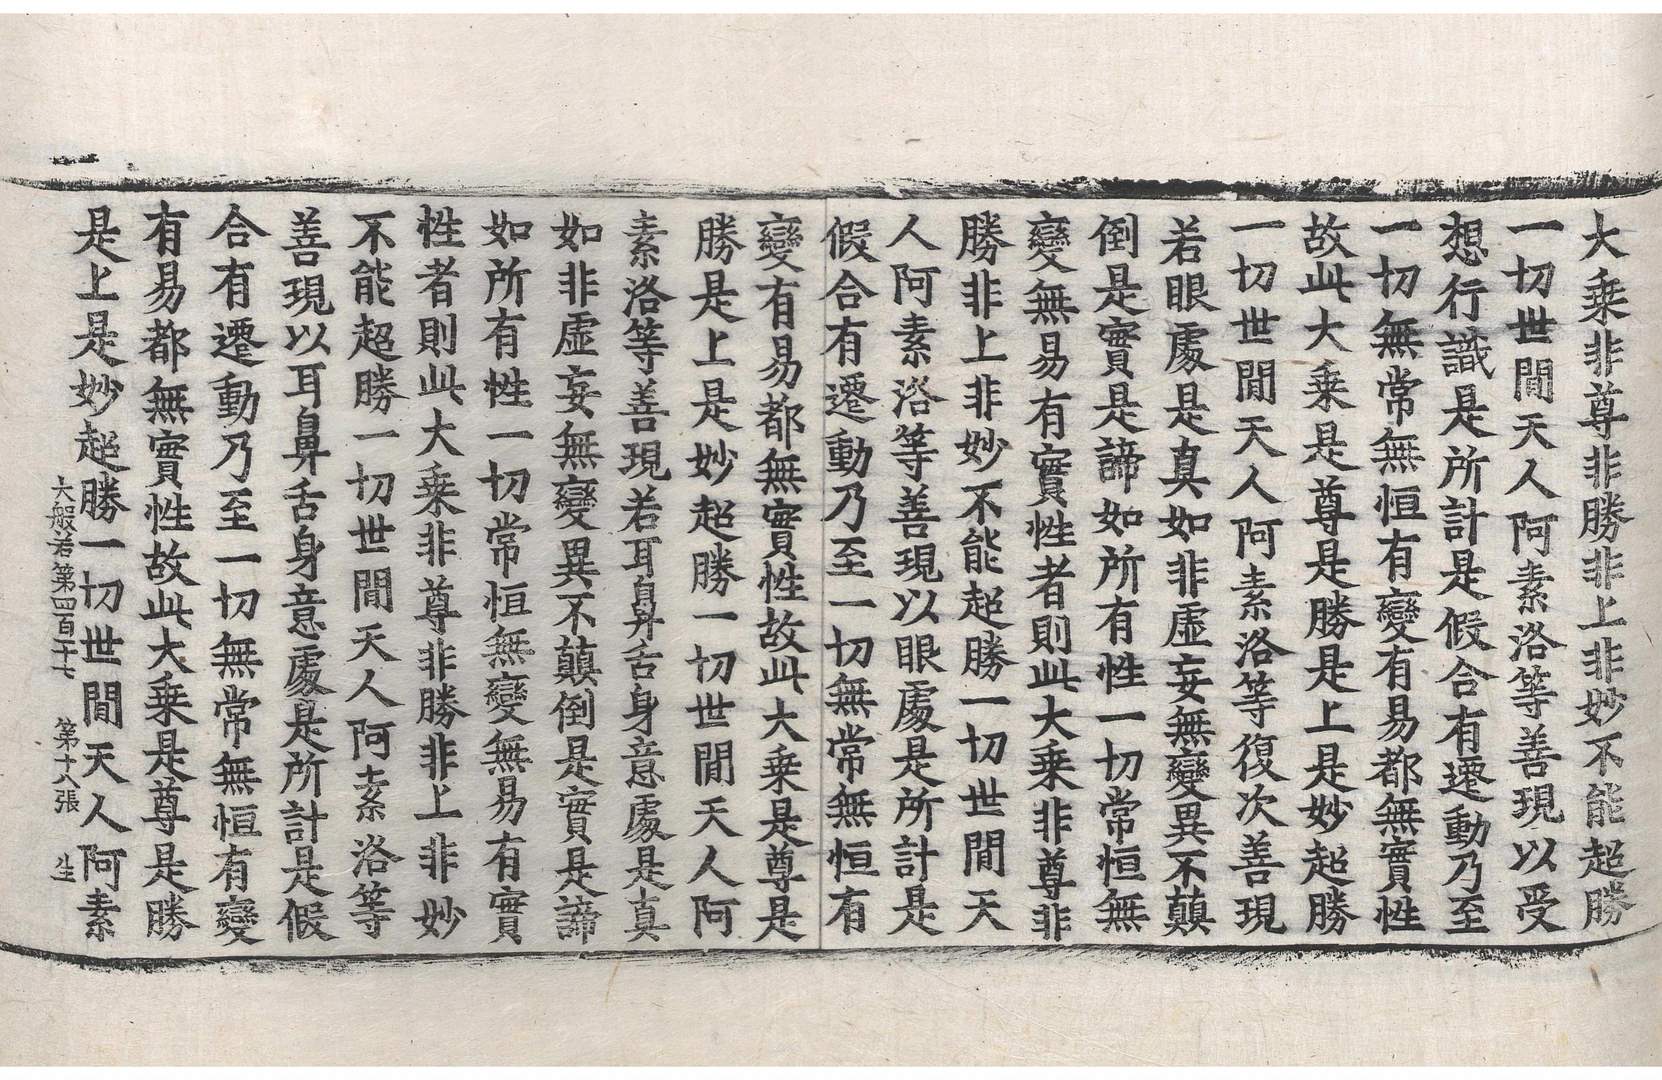 大乗非尊非勝非上非妙不能超勝
一切世間天人阿素洛等善現以受
想行識是所計是假合有遷動乃至
一切無常無恒有變有易都無實性
故此大乗是尊是勝是上是妙超勝
一切世間天人阿素洛等復次善現
若眼處是真如非虛妄無變異不顛
倒是實是諦如所有性一切常恒無
變無易有實性者則此大乗非尊非
勝非上非妙不能超勝一切世間天
人阿素洛等善現以眼處是所計是
假合有遷動乃至一切無常無恒有
變有易都無實性故此大乗是尊是
勝是上是妙超勝一切世間天人阿
素洛等善現若耳鼻舌身意處是真
如非虛妄無變異不顛倒是實是諦
如所有性一切常恒無變無易有實
性者則此大乗非尊非勝非上非妙
不能超勝一切世間天人阿素洛等
善現以耳鼻舌身意處是所計是假
合有遷動乃至一切無常無恒有變
有易都無實性故此大乗是尊是勝
是上是妙超勝一切世間天人阿素
大般若第四百十七 第十八張 生